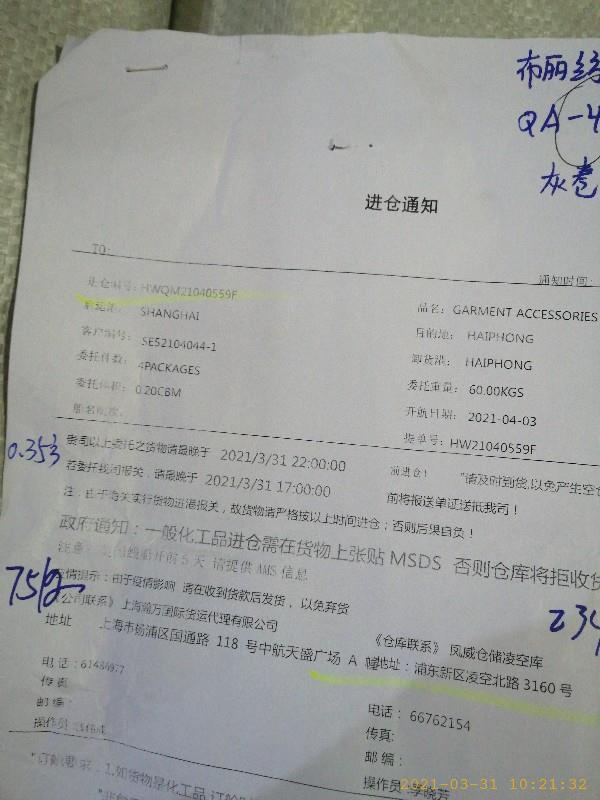 布丽丝
QA-4
灰卷
进仓通知
TO:
通知时间:
进仓编号: HWQM21040559F
品名: GARMENT ACCESSORIES
启运港: SHANGHAI
目的地: HAIPHONG
客户编号: SE52104044-1
卸货港: HAIPHONG
委托件数: 4PACKAGES
委托重量: 60.00KGS
委托体积: 0.20CBM
开航日期: 2021-04-03
船名航次:
提单号: HW21040559F
0.353
贵司以上委托之货物请最晚于 2021/3/31 22:00:00 前进仓! "请及时到货,以免产生空仓
若委托我司报关,请最晚于 2021/3/31 17:00:00 前将报送单证送抵我司!
注:由于海关实行货物进港报关,故货物请严格按以上时间进仓;否则后果自负!
政府通知:一般化工品进仓需在货物上张贴 MSDS 否则仓库将拒收货
注意: 美国线船开前5天 请提供 AMS 信息
疫情提示:由于疫情影响 请在收到货款后发货,以免弃货
《公司联系》上海瀚万国际货运代理有限公司
《仓库联系》 凤威仓储凌空库
地址 上海市杨浦区国通路 118 号中航天盛广场 A 幢
地址: 浦东新区凌空北路 3160 号
电话: 66762154
传真
传真:
邮编:
邮编:
操作员
操作员 李晓芳
2021-03-31 10:21:32